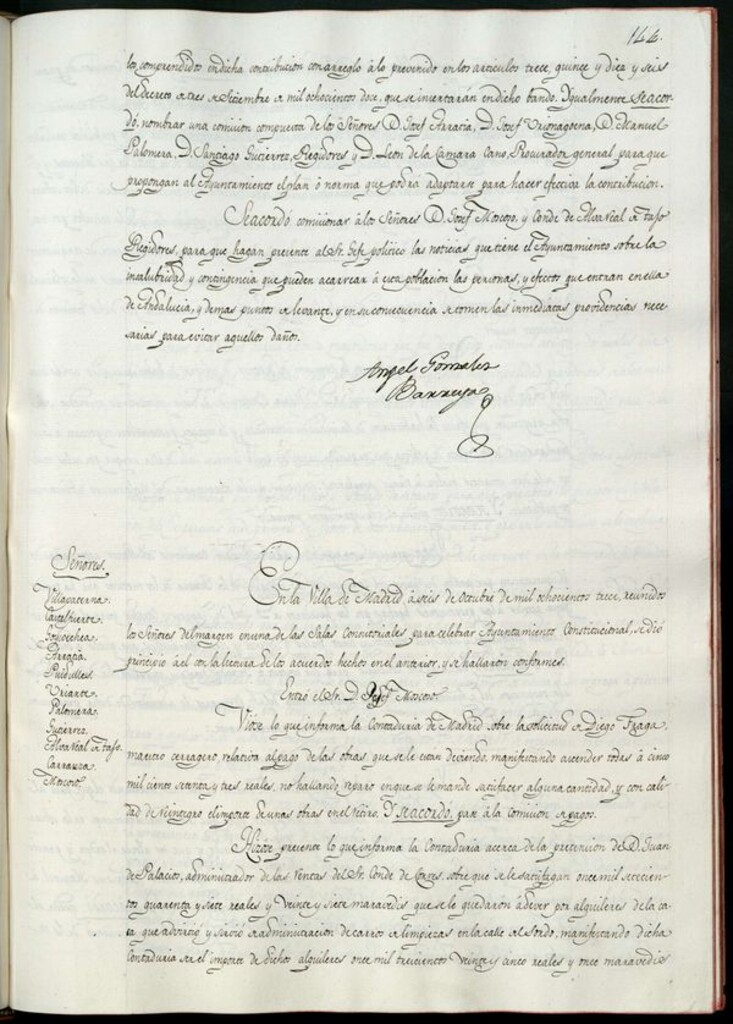 144.
los comprendidos en dicha contribucion con arreglo à lo prevenido en los articulos trece, quince y diez y seis
del decreto de tres de Setiembre de mil ochocientos doce, que se insertarán en dicho bando. Ygualmente se acor-
dó, nombrar una comision compuesta de los Señores D. Josef Arratia, D. Josef Urionagoena, D. Manuel
Palomera, D. Santiago Gutierrez, Regidores y D. Leon de la Camara Cano, Procurador general para que
propongan al Ayuntamiento el plan ò norma que podrá adaptarse para hacer efectiva la contribucion.
Se acordó comisionar à los Señores D. Josef Moscoso, y Conde de Alvarreal de Tajo
Regidores, para que hagan presente al Sr. Gefe politico las noticias que tiene el Ayuntamiento sobre la
insalubridad y contingencia que pueden acarrear à esta poblacion las personas, y efectos que entran en ella
de Andalucia, y demas puntos de levante, y en su consecuencia se tomen las inmediatas providencias nece-
sarias para evitar aquellos daños.
Angel Gonzalez
Barreyro
Señores.
Villapaterna.
Castelfuerte.
Goycoechea.
Arratia.
Puidulles.
Uriarte.
Palomera.
Gutierrez.
Alvarreal de Tajo.
Carranza.
Moscoso.
En la Villa de Madrid à seis de Octubre de mil ochocientos trece, reunidos
los Señores del margen en una de las Salas Consistoriales para celebrar Ayuntamiento Constitucional, se dió
principio à el con la lectura de los acuerdos hechos en el anterior, y se hallaron conformes.
Entró el Sr. D. Josef Moscoso
Vióse lo que informa la Contaduria de Madrid sobre la solicitud de Diego Fraga,
maestro cerragero, relativa al pago de las obras, que se le estan deviendo, manifestando ascender todas à cinco
mil ciento setenta y tres reales, no hallando reparo en que se le mande satisfacer alguna cantidad, y con cali-
dad de reintegro el importe de unas obras en el retiro. Y se acordó, pase à la Comision de pagos.
Hizose presente lo que informa la Contaduria acerca de la pretension de D. Juan
de Palacios, administrador de las rentas del Sr. Conde de Cares, sobre que se le satisfagan once mil setecien-
tos quarenta y siete reales y veinte y siete maravedis que se le quedaron à dever por alquileres de la ca-
sa que advirtio y sirvió de administracion de carros de limpiezas en la calle del Sordo, manifestando dicha
Contaduria ser el importe de dichos alquileres once mil trescientos veinte y cinco reales y once maravedis